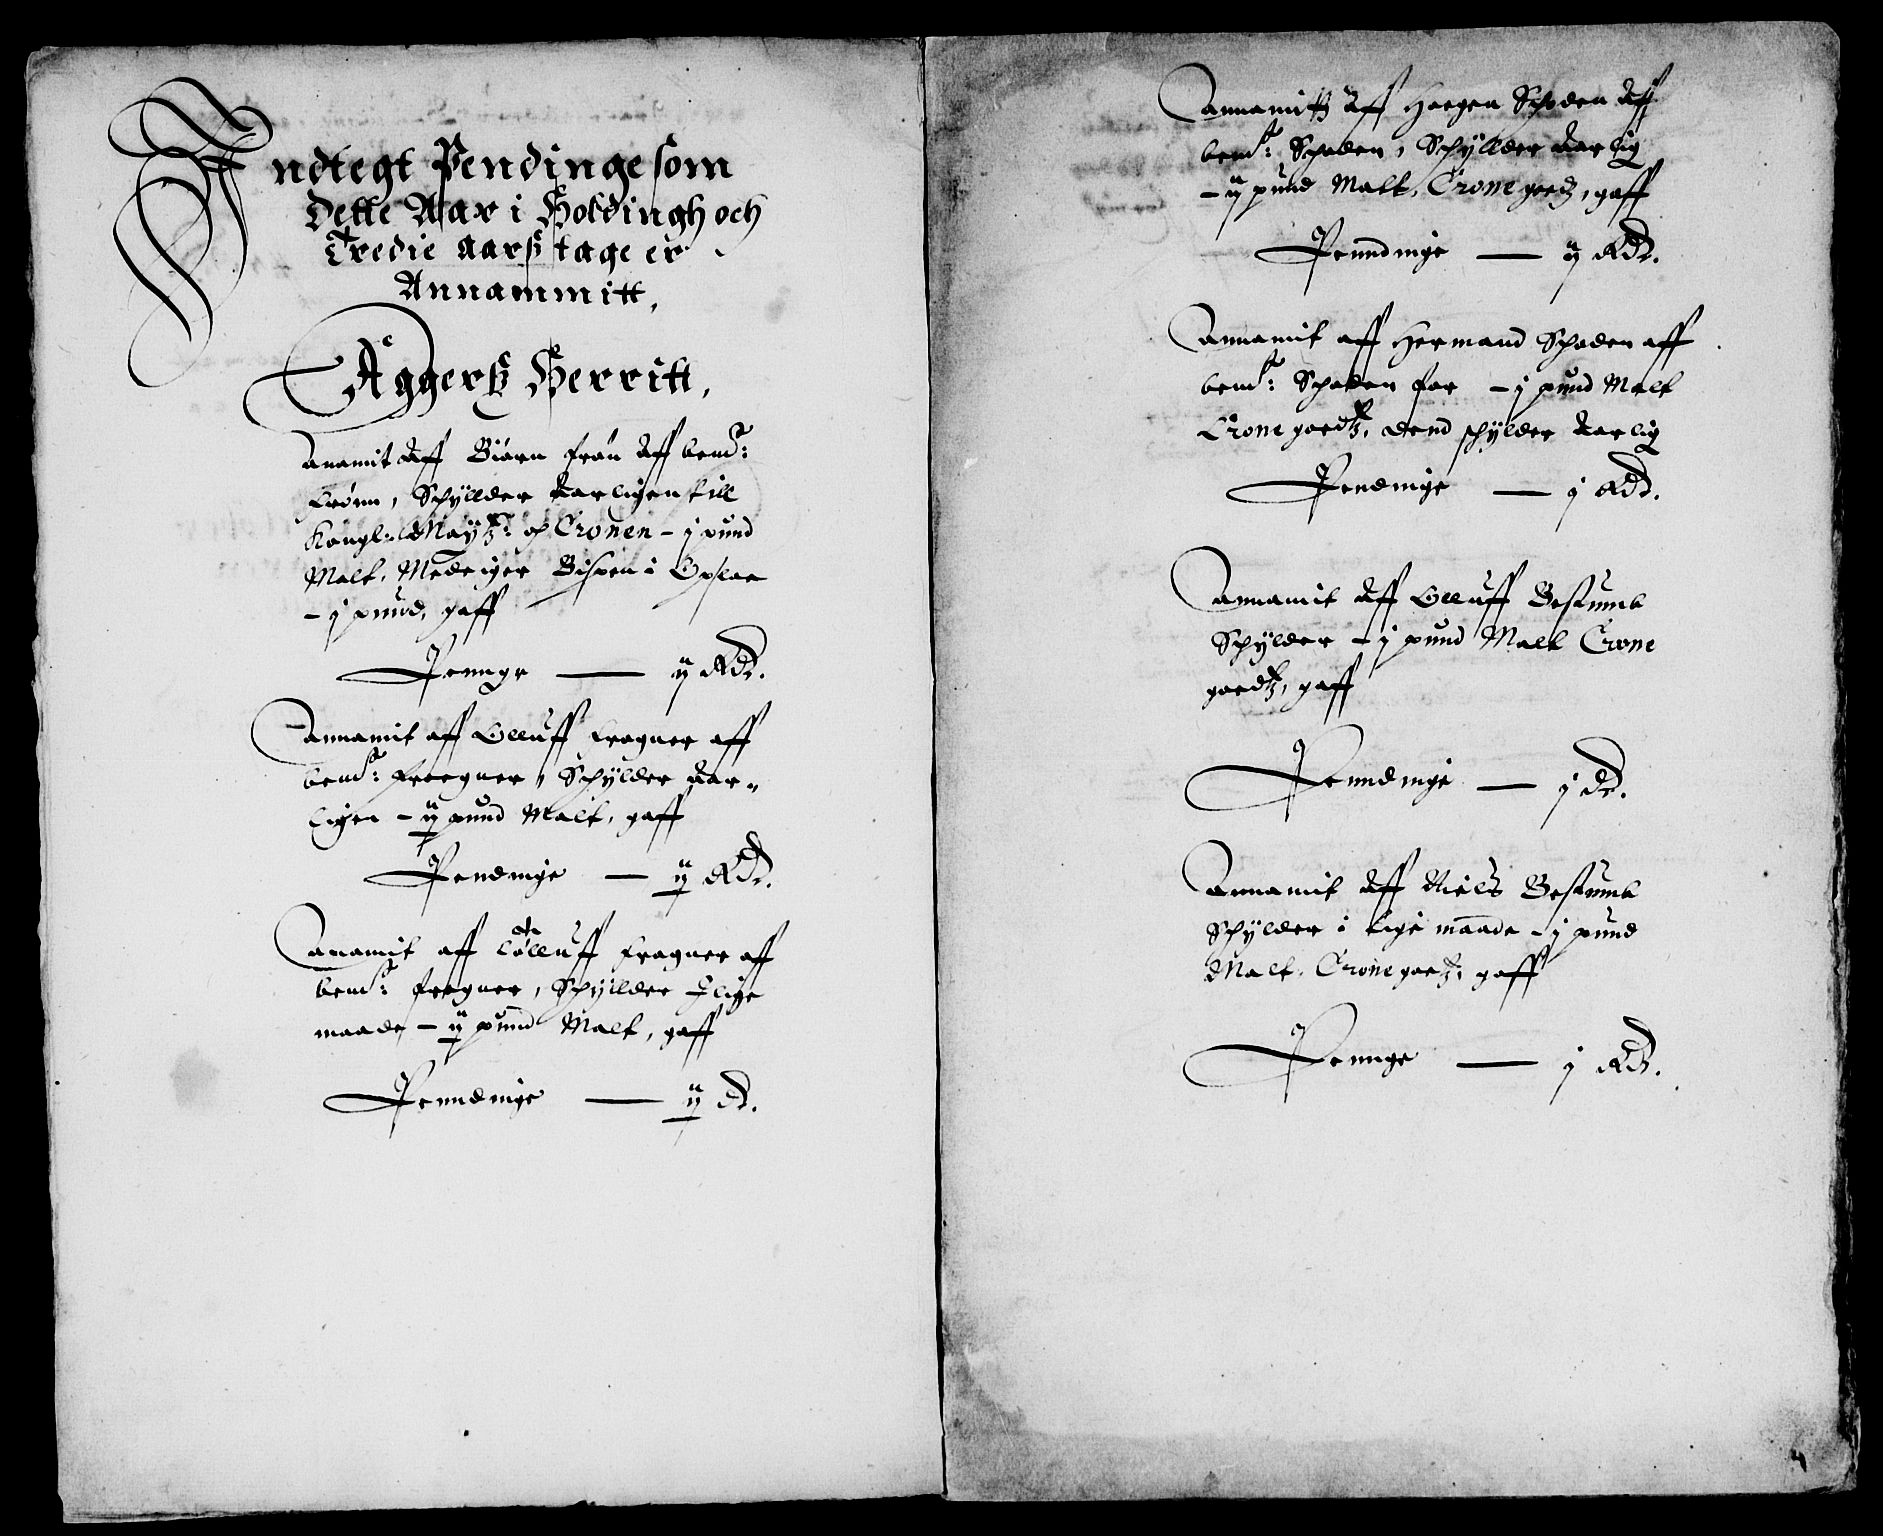 Indtegt Pendinge som
Dette Aar i Holdingh och
Tredie Aarß tage er
Annammitt,
Aggerß Herritt,
Anamit Aff Biørn Frøn Aff bemt:
Frønn, Schyllder Aarligen till
Kongl: Maytz: oc Cronen – j pund
Malt, Mede iger Bispen i Opsloe
– j pund, gaff
Pennge — ij Rdr.
Annamit aff Olluff Fragner aff
bemt: Fregner, Schylder Aar„
ligen – ij pund Malt, gaff
Pendinge — ij Rdr.
Anamit aff Olluff Fragner aff
bemt: Fragner, Schyllder I lige
maade – ij pund Malt, gaff
Penndinge — ij dr.
Annamitt Aff Haagen Schøden Aff
bemt: Schøden, Schyllder Aarlig
– ij pund Malt, Crone goedz, gaff
Penndinge — ij Rdr.
Annamit aff Hermand Schøden aff
bemt: Schøden for – j pund Malt
Crone goedtz, dend schylder Aarlig
Pendinge — j Rdr.
Annamit Aff Olluff Bestumb
Schylder – j pund Malt Crone
goedtz, gaff
Penndinge — j dr.
Annamit Aff Niels Bestumb
Schylder i lige maade – j pund
Malt, Crone goetz, gaff
Pennge — j Rdr.
4